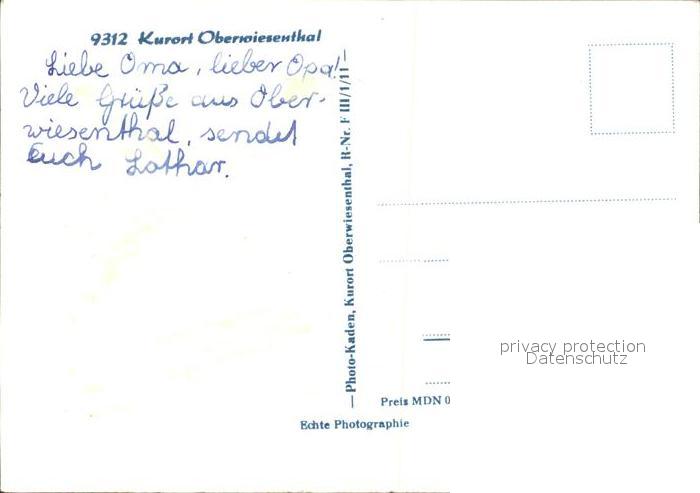 9312 Kurort Oberwiesenthal
Liebe Oma, lieber Opa!
Viele Grüße aus Ober-
wiesenthal, sendet
Euch Lothar.
Photo-Kaden, Kurort Oberwiesenthal, R-Nr. F III/1/11
privacy protection
Datenschutz
Preis MDN 0
Echte Photographie